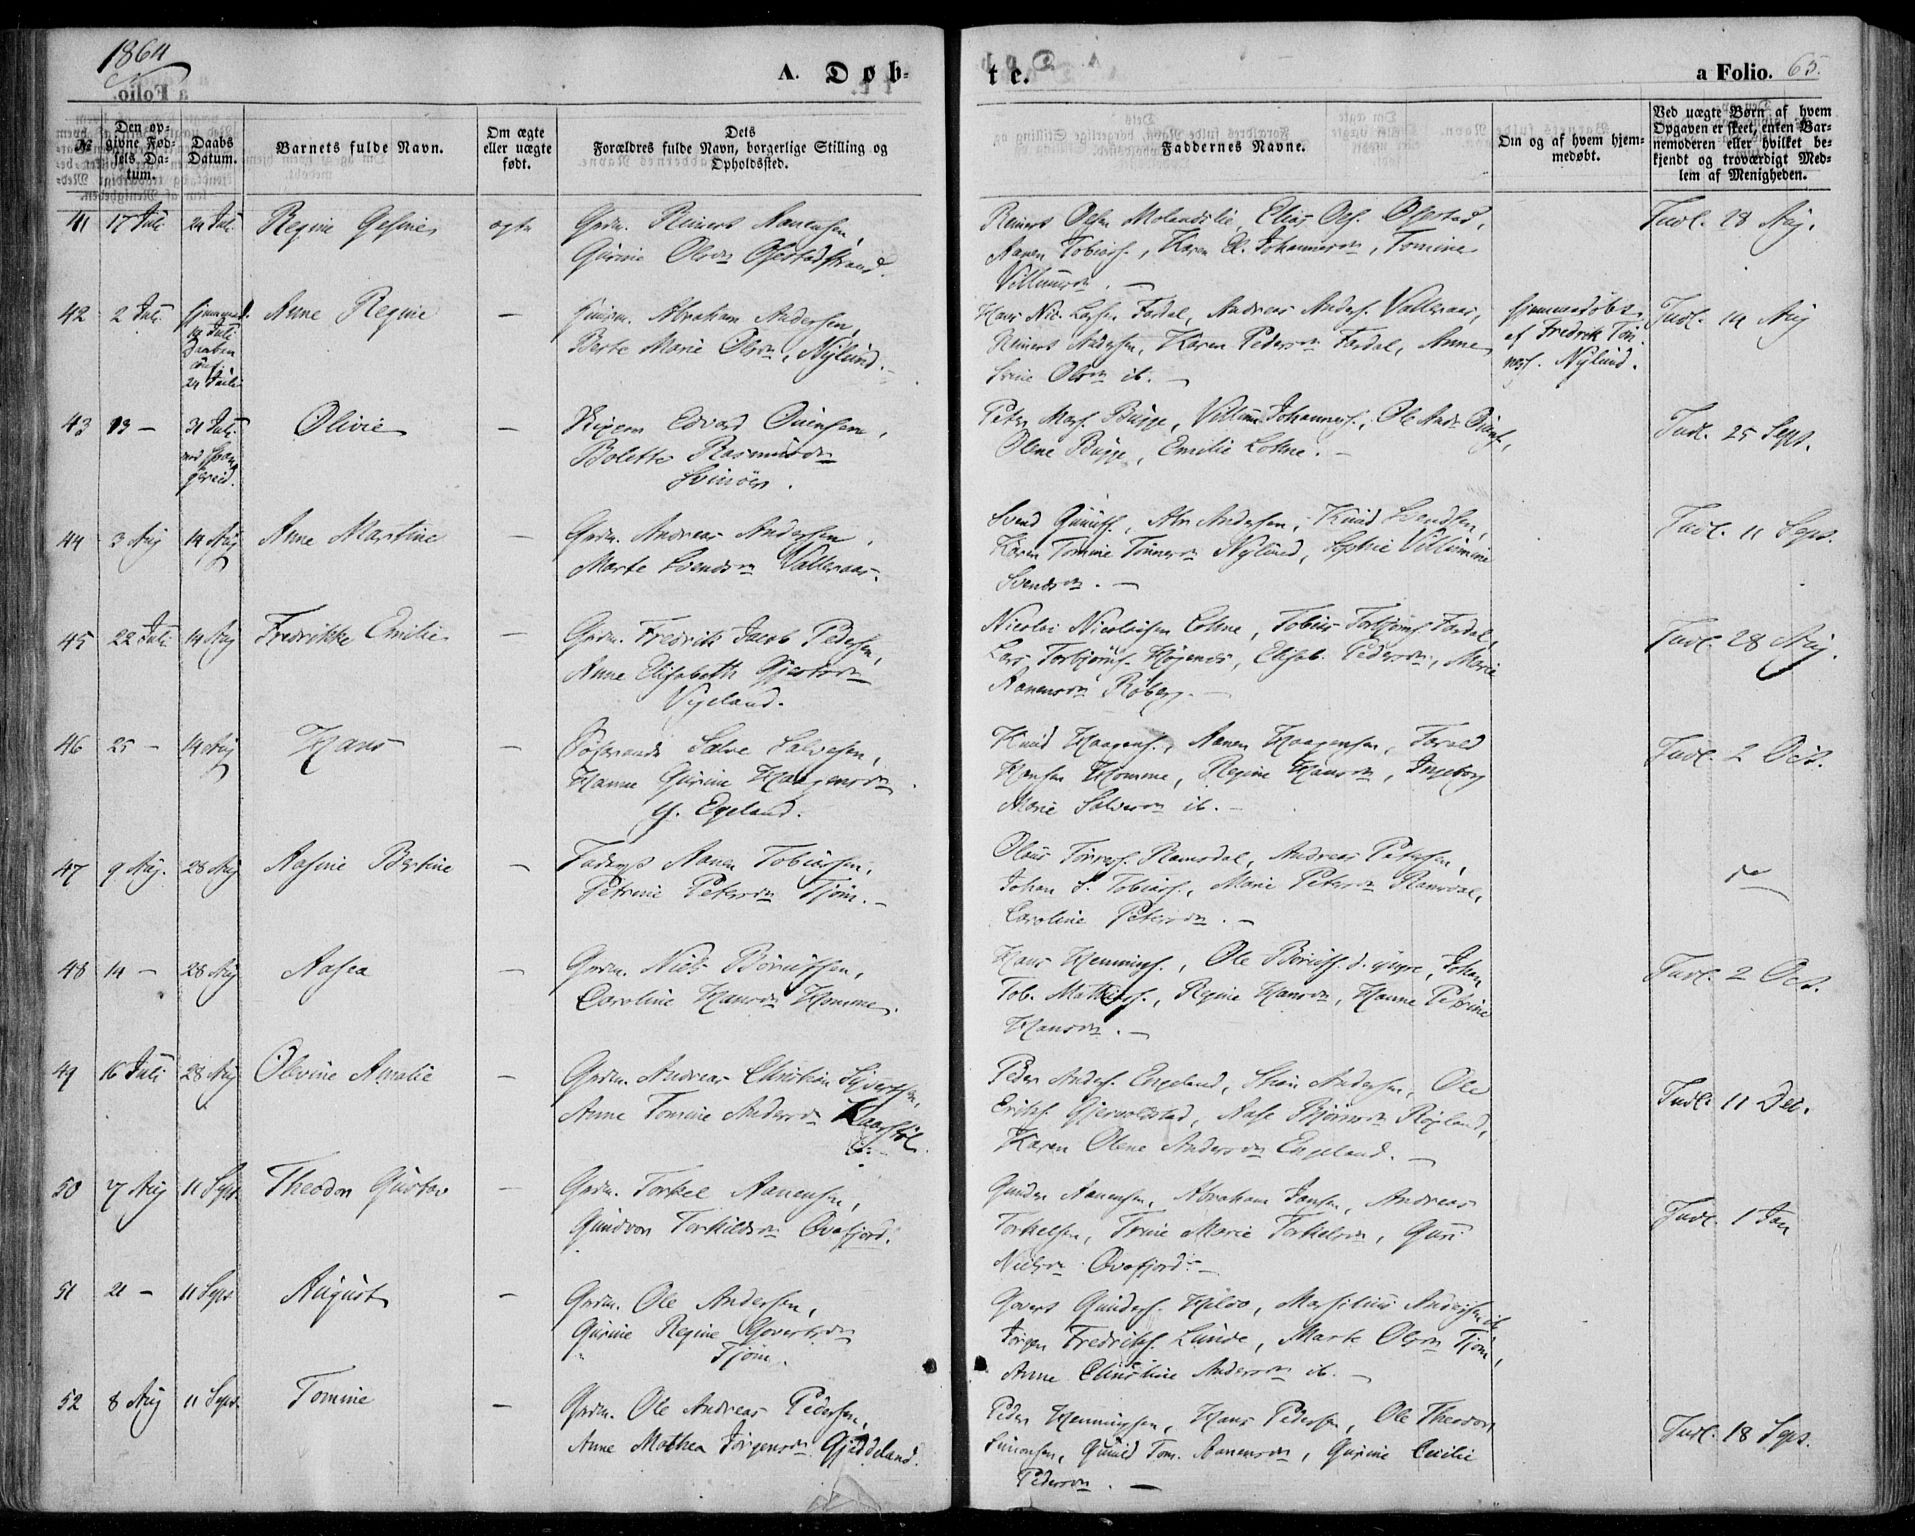 1864
A. Døb-
te.
a Folio. 65.
№
Den op-
givne Fød-
sels Da-
tum.
Daabs
Datum.
Barnets fulde Navn.
Om ægte
eller uægte
født.
Dets
Forældres fulde Navn, borgerlige Stilling og
Opholdssted.
Faddernes Navne.
Om og af hvem hjem-
medøbt.
Ved uægte Børn af hvem
Opgaven er skeet, enten Bar-
nemoderen eller hvilket be-
kjendt og troværdigt Med-
lem af Menigheden.
41 17 Juli 24 Juli Regine Gesine ægte Grdm. Reinert Aanensen,
Gurine Olsdn
Elias Olss. Olestad,
Aanen Tobiass., Karen E. Johannesdn, Tomine
Villumsdn. —
Indl. 28 Aug.
42 2 Juli
24 Juli
Anne Regine — Abraham Andersen,
Berte Marie Olsdn, Nylund. —
Hans Nic. Fardal, Andreas Anders. Valleraas,
Reinert Andersen, Karen Pedersdn Fardal, Anne
Olsdn ib. —
hjemmedøbt
af Fredrik Tøn-
ness. Nylund.
Indl. 14 Aug
43 13 — 31 Juli
Olivie — Edvard
Bolette Rasmusdn
Svinøer.
Peter Bugge, Villum Johanness., Ole
Olene Bugge, Emilie Lohne. —
Indl. 25 Sept.
44 3 Aug 14 Aug Anne Martine — Grdm. Andreas Andersen,
Marte Svendsdn Valleraas.
Svend Andersen, Knud Svendsen,
Karen Tomine Tønnesdn Nylund, Sophie Villumine
Svendsdn. —
Indl. 11 Sept.
45 22 Juli 14 Aug Fredrikke Emilie — Grdm. Fredrik Jacob Pedersen,
Anne Elisabeth
Vigeland.
Nicolai Nicolaisen Lohne, Tobias Torbjørns. Fardal,
Lars Torbjørns. Elisab. Pedersdn, Marie
Aanensdn Roberg. —
Indl. 28 Aug.
46 25 — 14 Aug Hans — Salve Salvesen,
Hanne Gurine Haagensdn
Y. Egeland.
Knud Haagens., Aanen Haagensen,
Hansen Homme, Regine Hansdn, Ingeborg
Marie Salvesdn ib. —
Indl. 2 Oct.
47 9 Aug. 28 Aug Aasine Bertine — Aanen Tobiassen,
Petrine Petersdn Tjøm. —
Olaus Tørress. Ramsdal, Andreas Petersen,
Johan S. Tobiass., Marie Petersdn Ramsdal,
Caroline Petersdn. —
48 14 — 28 Aug Aasea — Grdm. Niels Børrufsen,
Caroline Hansdn Homme.
Hans Hennings., Ole d. yngre, Johan
Tob. Mathiass., Regine Hansdn, Hanne Petrine
Hansdn. —
Indl. 2 Oct.
49 16 Juli 28 Aug Olevine Amalie — Grdm. Andreas Christian Syvertsen,
Anne Tomine Andersdn
Peder Anders. Engeland, Andersen, Ole
Eriks. Aase Bjørnsdn Røgland,
Karen Olene Andersdn Engeland. —
Indl. 11 Dec.
50 7 Aug 11 Sept. Theodor Gustav — Grdm. Torkel Aanensen,
Gundvor Torkildsdn Ovafjord.
Gunder Aanensen, Abraham Jansen, Andreas
Torkelsen, Trine Marie Torkelsdn, Guri
Nielsdn Ovafjord. —
Indl. 1 Jan
51 21 — 11 Sept August — Grdm. Ole Andersen,
Gurine Regine Govertsdn
Tjøm.
Govert Gunders. Andersen ib
Jørgen Fredriks. Lunde, Marte Olsdn Tjøm,
Anne Christine Andersdn ib. —
52 8 Aug 11 Sept. Tomine — Grdm. Ole Andreas Pedersen,
Anne Mathea Jørgensdn Gjeddeland.
Peder Henningsen, Hans Pedersen, Ole Theodor
Simonsen, Gunild Tom. Aanensdn, Gurine Cecilie
Pedersdn. —
Indl. 18 Sept.